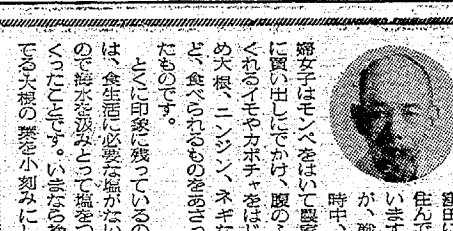 窪田に
住んで
います
が、戦
時中、
婦女子はモンペをはいて農家
に買い出しにでかけ、腹のふ
くれるイモやカボチャをはじ
め大根、ニンジン、ネギな
ど、食べられるものをあさっ
たものです。
とくに印象に残っているの
は、食生活に必要な塩がない
ので海水を汲みとって塩をつ
くったことです。いまなら捨
てる大根の葉を小刻みにし